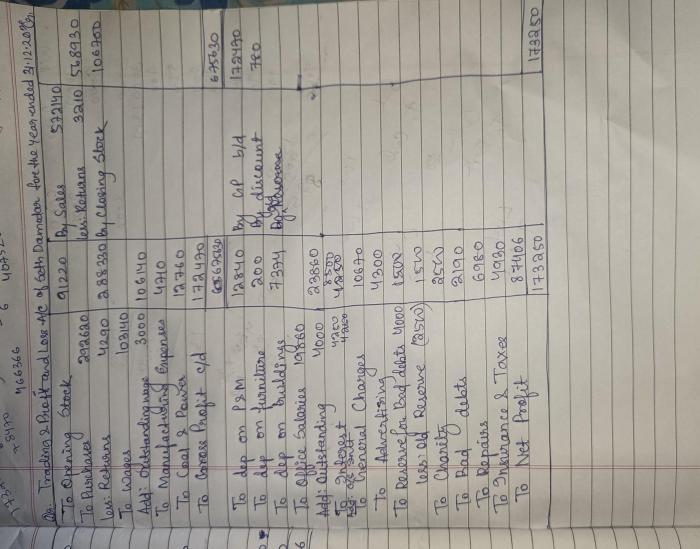 Dr. Trading & Profit and Loss A/c of Goth Damodar for the year ended 31.12.20 Cr.
To Opening Stock 91220 By Sales 572140
To Purchases 292620 less: Returns 3210 568930
less: Returns 4290 288330 By Closing Stock 106700
To Wages 103140
Add: Outstanding wage 3000 106140
To Manufacturing Expenses 4710
To Coal & Power 12760
To Gross Profit c/d 172470
675630 675630
To dep on P&M 12840 By GP b/d 172470
To dep on furniture 200 By discount 780
To dep on buildings 7394
To Office Salaries 19860
Add: Outstanding 4000 23860
To Interest 4250 8500
4250 4250
To General Charges 10670
To Advertising 4300
To Reserve for Bad debts 4000 1500
less: Old Reserve (2500) 1500
To Charity 2500
To Bad debts 2190
To Repairs 6980
To Insurance & Taxes 4930
To Net Profit 87406
173250 173250